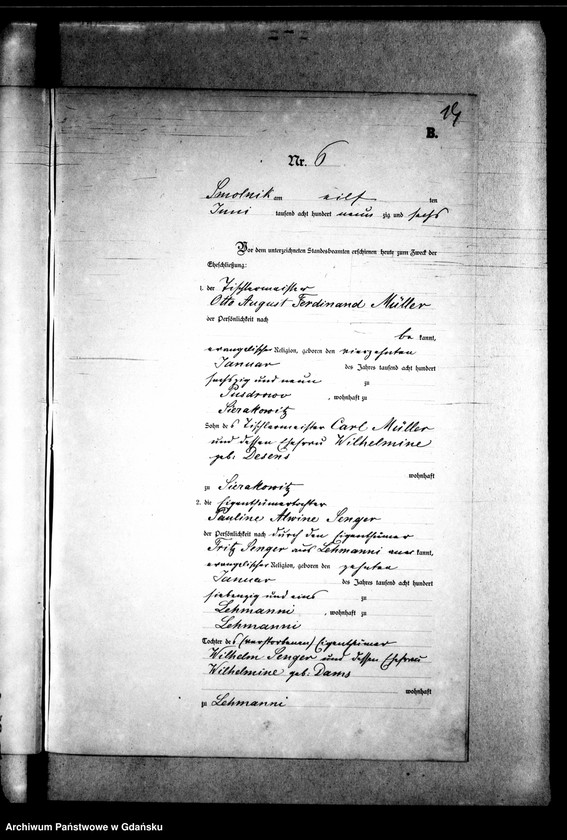 B.
Nr. 6
Smolnik am eilf ten
Juni tausend acht hundert neun zig und sechs
Vor dem unterzeichneten Standesbeamten erschienen heute zum Zweck der
Eheschließung:
1. der Tischlermeister
Otto August Ferdinand Müller
der Persönlichkeit nach
be kannt,
evangelischer Religion, geboren den vierzehnten
Januar des Jahres tausend acht hundert
sechszig und neun zu
Pusdrowo, wohnhaft zu
Sierakowitz
Sohn des Tischlermeister Carl Müller
und dessen Ehefrau Wilhelmine
geb: Desens
wohnhaft
zu Sierakowitz
2. die Eigenthümertochter
Pauline Alwine Senger
der Persönlichkeit nach durch den Eigenthümer
Fritz Senger aus Lehmanni aner kannt,
evangelischer Religion, geboren den zehnten
Januar des Jahres tausend acht hundert
siebenzig und eins zu
Lehmanni, wohnhaft zu
Lehmanni
Tochter des (verstorbenen) Eigenthümer
Wilhelm Senger und dessen Ehefrau
Wilhelmine geb: Dams
wohnhaft
zu Lehmanni
Archiwum Państwowe w Gdańsku